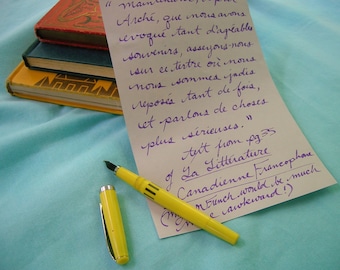 " maintenant,
Arché, que nous avons
évoqué tant d'agréables
souvenirs, asseyons-nous
sur ce tertre où nous
nous sommes jadis
reposés tant de fois,
et parlons de choses
plus sérieuses."
text from pg 35
of La Littérature
Canadienne Francophone
(my own french would be much
more awkward!)